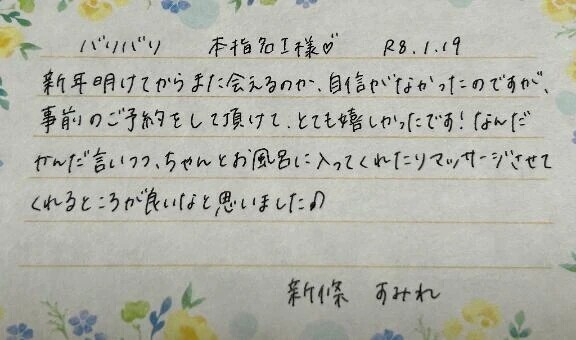 バリバリ 本指名I様♡ R8.1.19
新年明けてからまた会えるのか、自信がなかったのですが、
事前のご予約をして頂けて、とても嬉しかったです!なんだ
かんだ言いつつ、ちゃんとお風呂に入ってくれたりマッサージさせて
くれるところが良いなと思いました♪
新條 すみれ